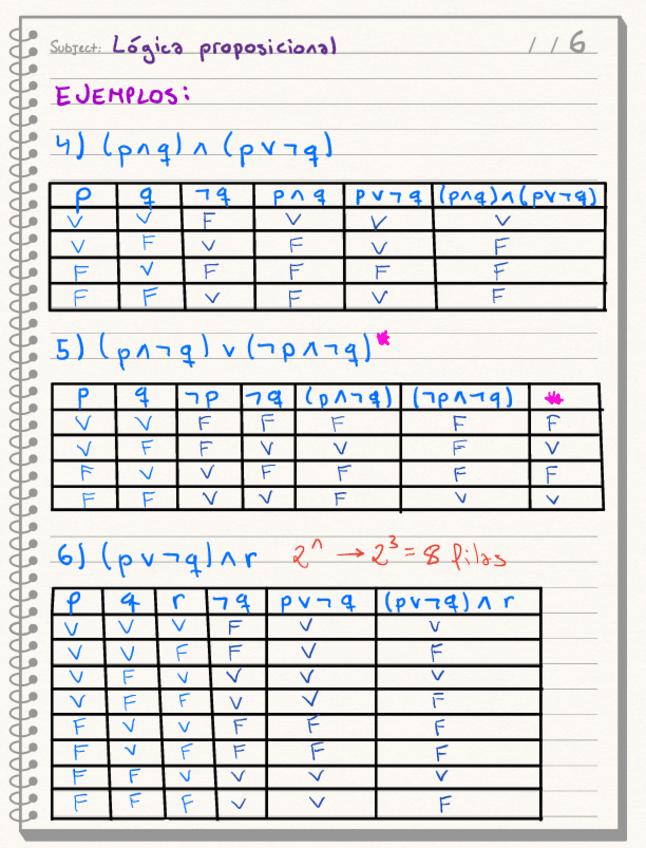 Subject: Lógica proposicional / / 6
EJEMPLOS:
4) (p∧q) ∧ (p∨¬q)
p q ¬q p∧q p∨¬q (p∧q)∧(p∨¬q)
V V F V V V
V F V F V F
F V F F F F
F F V F V F
5) (p∧¬q) ∨ (¬p∧¬q)*
p q ¬p ¬q (p∧¬q) (¬p∧¬q) *
V V F F F F F
V F F V V F V
F V V F F F F
F F V V F V V
6) (p∨¬q)∧r 2^n → 2³ = 8 filas
p q r ¬q p∨¬q (p∨¬q)∧r
V V V F V V
V V F F V F
V F V V V V
V F F V V F
F V V F F F
F V F F F F
F F V V V V
F F F V V F